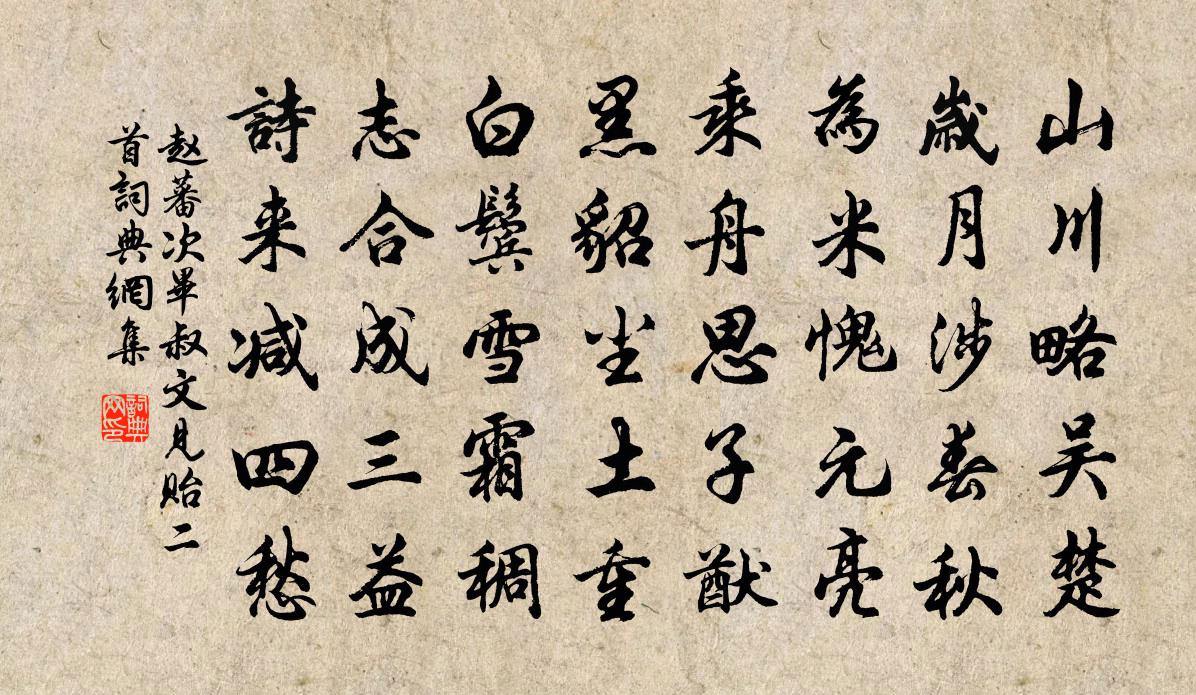 山川略吴楚
歲月涉春秋
為米愧元亮
乘舟思子猷
黑貂尘土重
白鬓雪霜稠
志合成三益
詩来减四愁
赵蕃次畢叔文見贻二
首詞典網集
詞典
网印